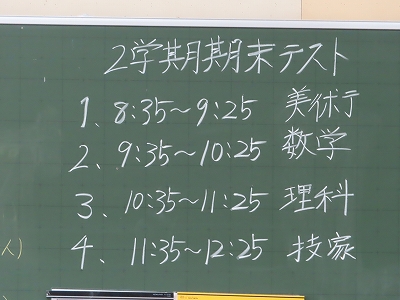 2学期期末テスト
1、8:35～9:25 美術
2、9:35～10:25 数学
3、10:35～11:25 理科
4、11:35～12:25 技家
人)